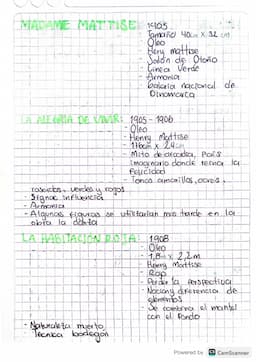 MADAME MATTISE: 1905
- Tamaño 40cm x 32 cm
- Oleo
- Heny mattise
- Salón de Otoño
- Linea Verde
- Armonia
- Galaria nacional de Dinamarca
LA ALEGRIA DE VIVIR: 1905 - 1906
- Oleo
- Henry Mattise
- 176cm x 24cm
- Mito de arcadia, País
imaginario donde reina la
felicidad
- Tonos amarillos, ocres,
rosacios, verdes y rojos
- Signac influencia
- Armonia
- Algunas figuras se utilizarian mas tarde en la
obra la danza
LA HABITACIÓN ROJA: 1908
- Oleo
- 1,8m x 2,2m
- Henry Mattise
- Rojo
- Perder la perspectiva
- diferencia de
elementos
- Se combina el mantel
con el fondo
- Naturaleza muerta
Técnica bodegon
Powered by CS CamScanner